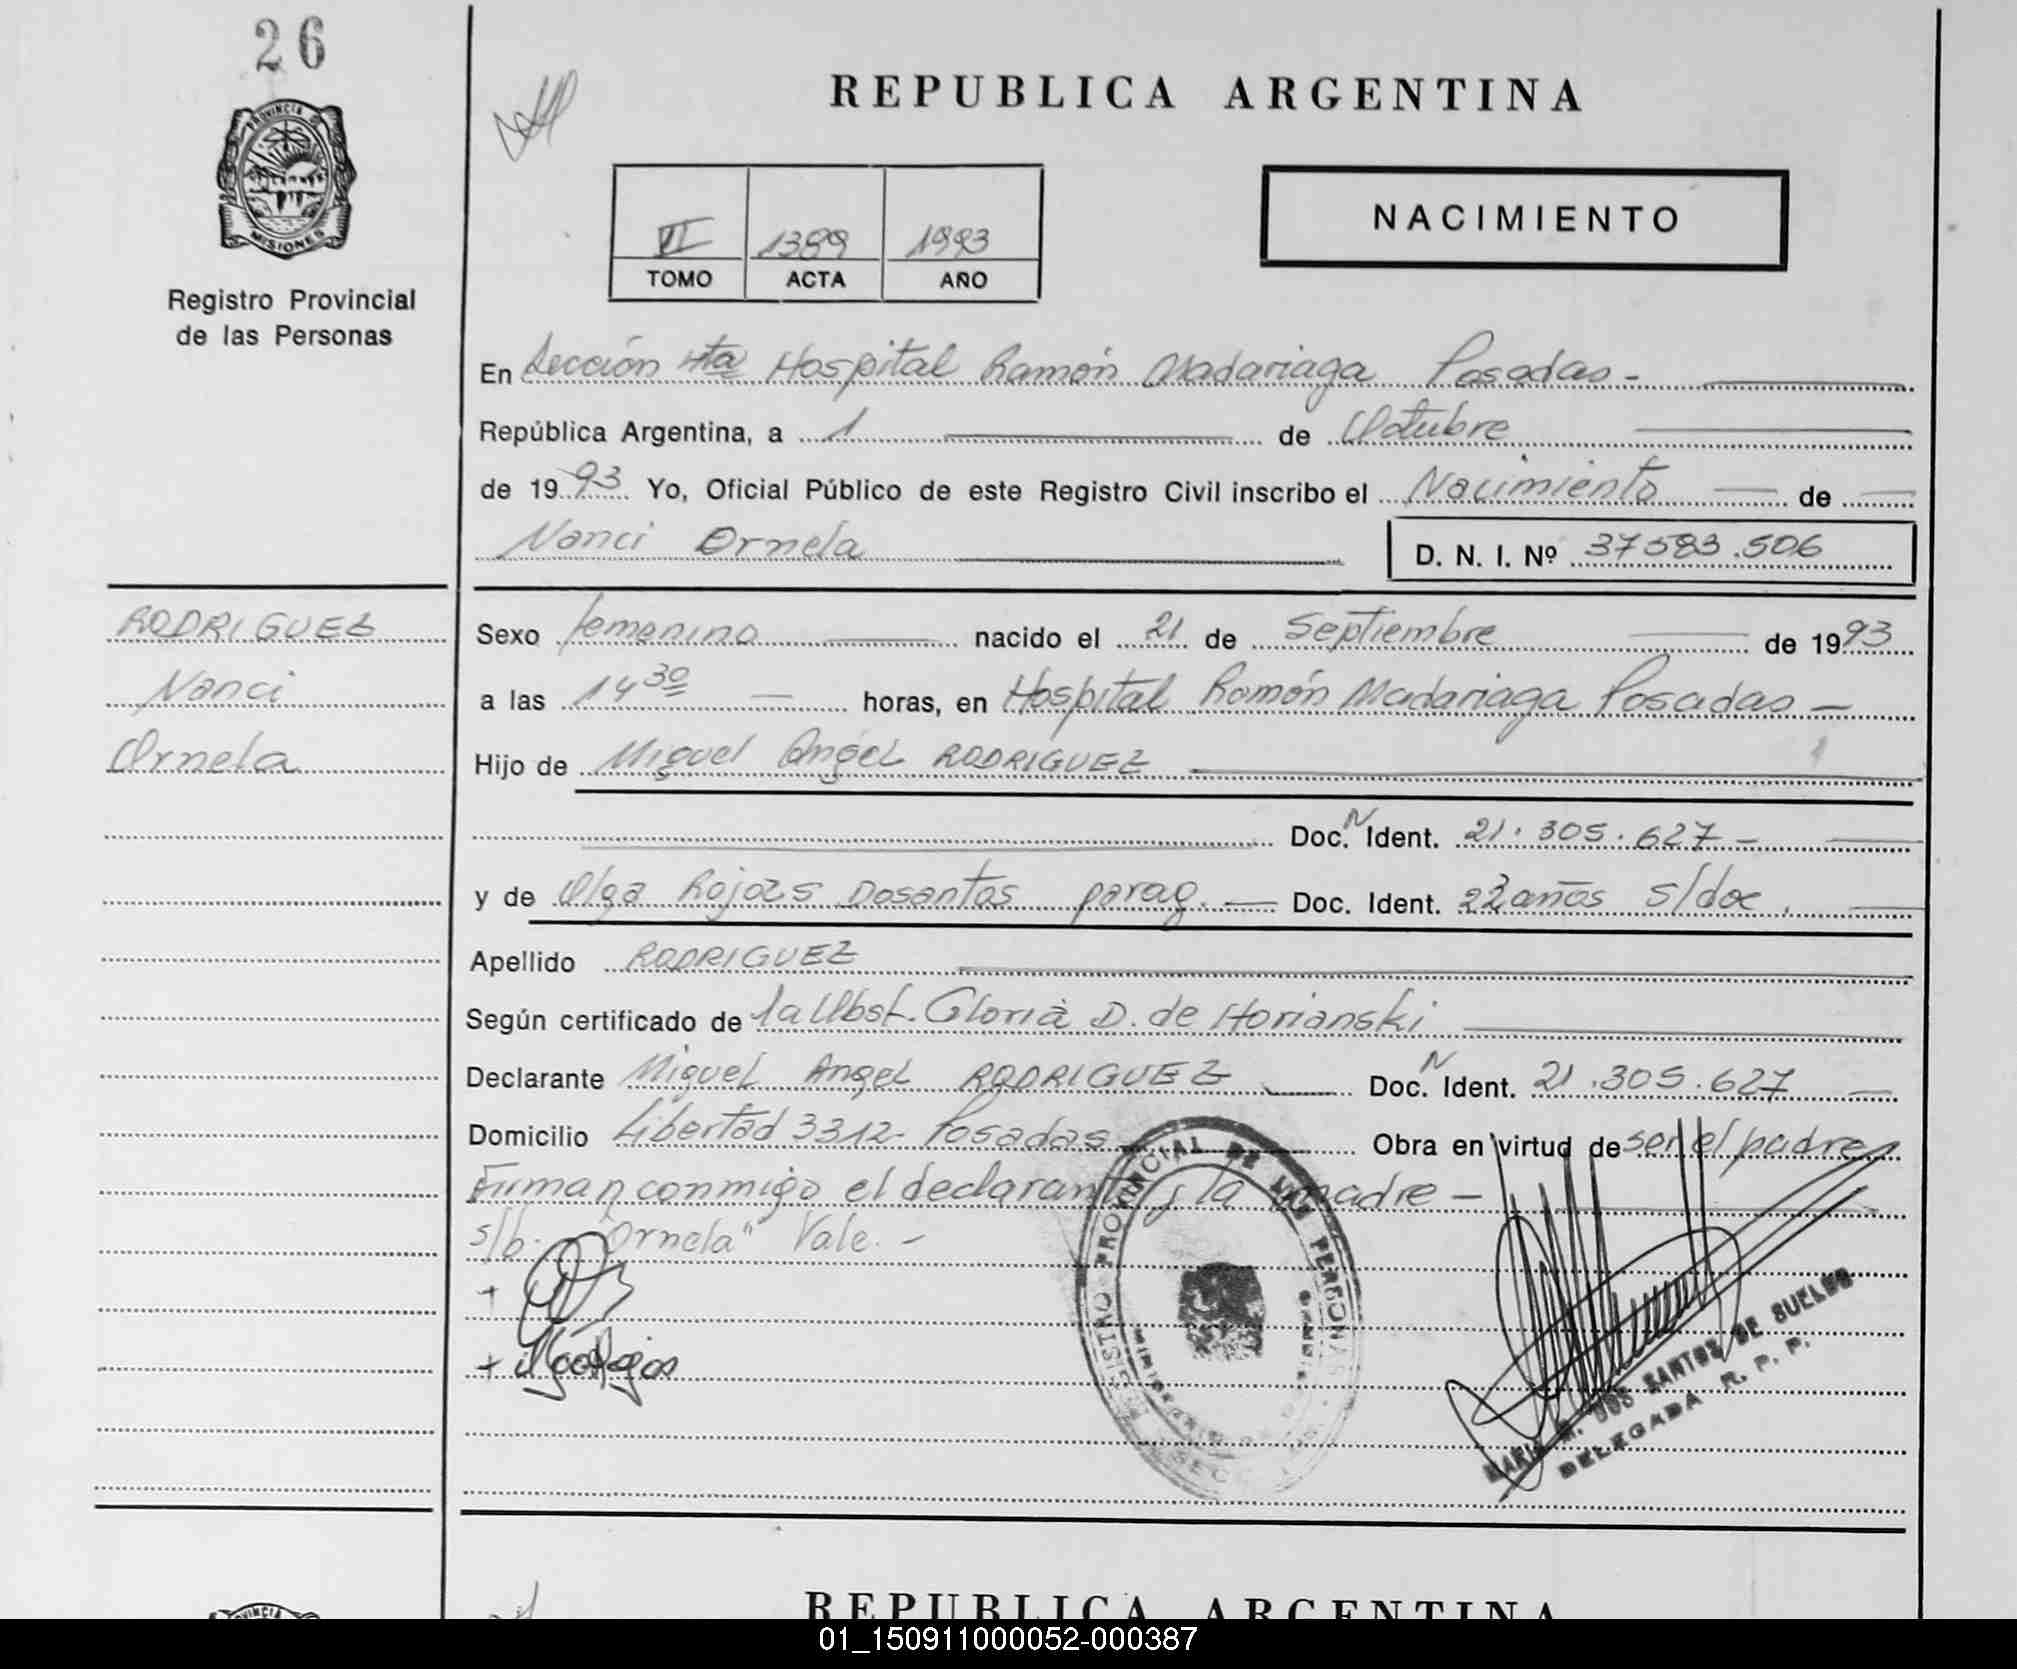 26
REPUBLICA ARGENTINA
PROVINCIA D
MISIONES
Registro Provincial
de las Personas
NACIMIENTO
VI 1389 1993
TOMO ACTA AÑO
En Sección 4ta Hospital Ramón Madariaga Posadas -
República Argentina, a 1 de Octubre
de 1993 Yo, Oficial Público de este Registro Civil inscribo el Nacimiento de
Nanci Ornela D. N. I. Nº 37583.506
RODRIGUEZ
Nanci
Ornela
Sexo femenino nacido el 21 de Septiembre de 1993
a las 14 30 horas, en Hospital Ramón Madariaga Posadas -
Hijo de Miguel Angel RODRIGUEZ
Doc. N Ident. 21.305.627 -
y de Olga Rojas Dosantos parag. Doc. Ident. 22 años s/doc.
Apellido RODRIGUEZ
Según certificado de la Obst. Gloria D. de Horianski
Declarante Miguel Angel RODRIGUEZ Doc. N Ident. 21.305.627
Domicilio Libertad 3312 - Posadas Obra en virtud de ser el padre
Firman conmigo el declarante y la madre -
s/b. "Ornela" Vale. -
+
+ Olga Rojas
REGISTRO PROVINCIAL DE LAS PERSONAS
MARIA DOS SANTOS DE BUELOS
DELEGADA R. P. P.
REPUBLICA ARGENTINA
01_150911000052-000387